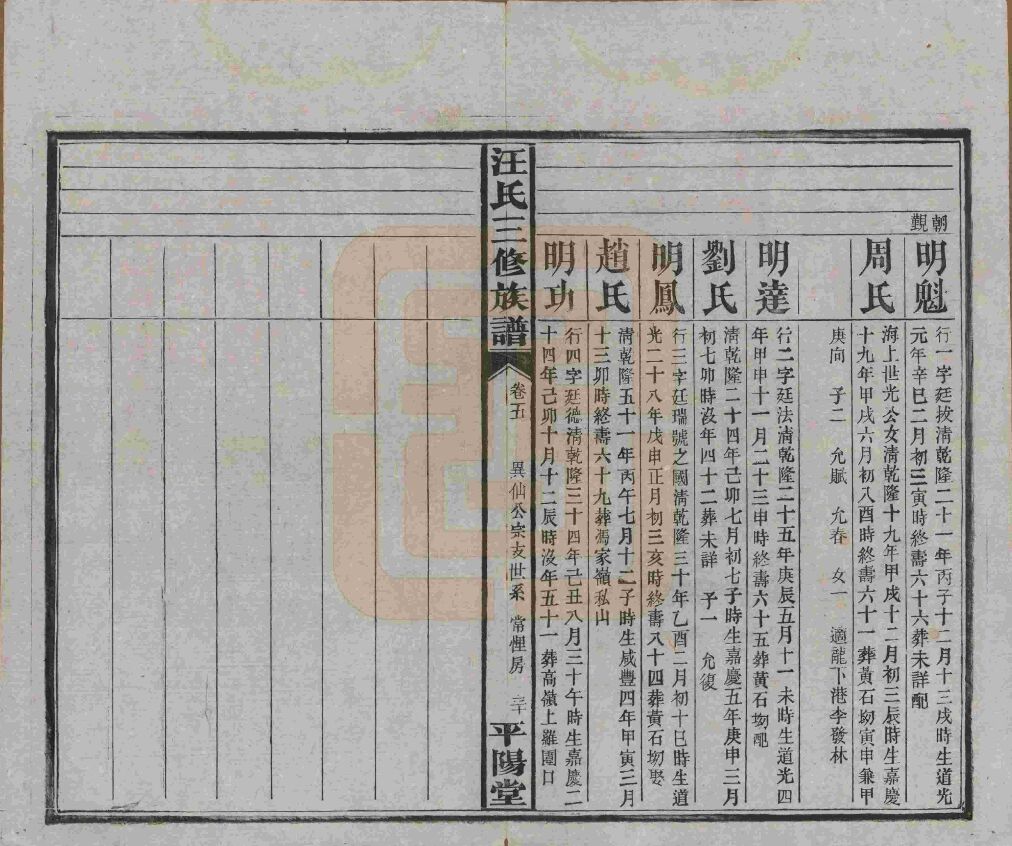 朝覲
明魁
行一字廷拔清乾隆二十一年丙子十二月十三戌時生道光
元年辛巳二月初三寅時終壽六十六葬未詳配
周氏
海上世光公女清乾隆十九年甲戌十二月初三辰時生嘉慶
十九年甲戌六月初八酉時終壽六十一葬黃石坳寅申兼甲
庚向 子二 允賦 允春 女一 適龍下港李發林
明達
行二字廷法清乾隆二十五年庚辰五月十一未時生道光四
年甲申十一月二十三申時終壽六十五葬黃石坳配
劉氏
清乾隆二十四年己卯七月初七子時生嘉慶五年庚申三月
初七卯時沒年四十二葬未詳 子一 允復
明鳳
行三字廷瑞號之國清乾隆三十年乙酉二月初十巳時生道
光二十八年戊申正月初三亥時終壽八十四葬黃石坳娶
趙氏
清乾隆五十一年丙午七月十二子時生咸豐四年甲寅三月
十三卯時終壽六十九葬馮家嶺私山
明功
行四字廷德清乾隆三十四年己丑八月三十午時生嘉慶二
十四年己卯十月十二辰時沒年五十一葬高嶺上羅圍口
汪氏三修族譜
卷五
異仙公宗支世系 常悝房
平陽堂